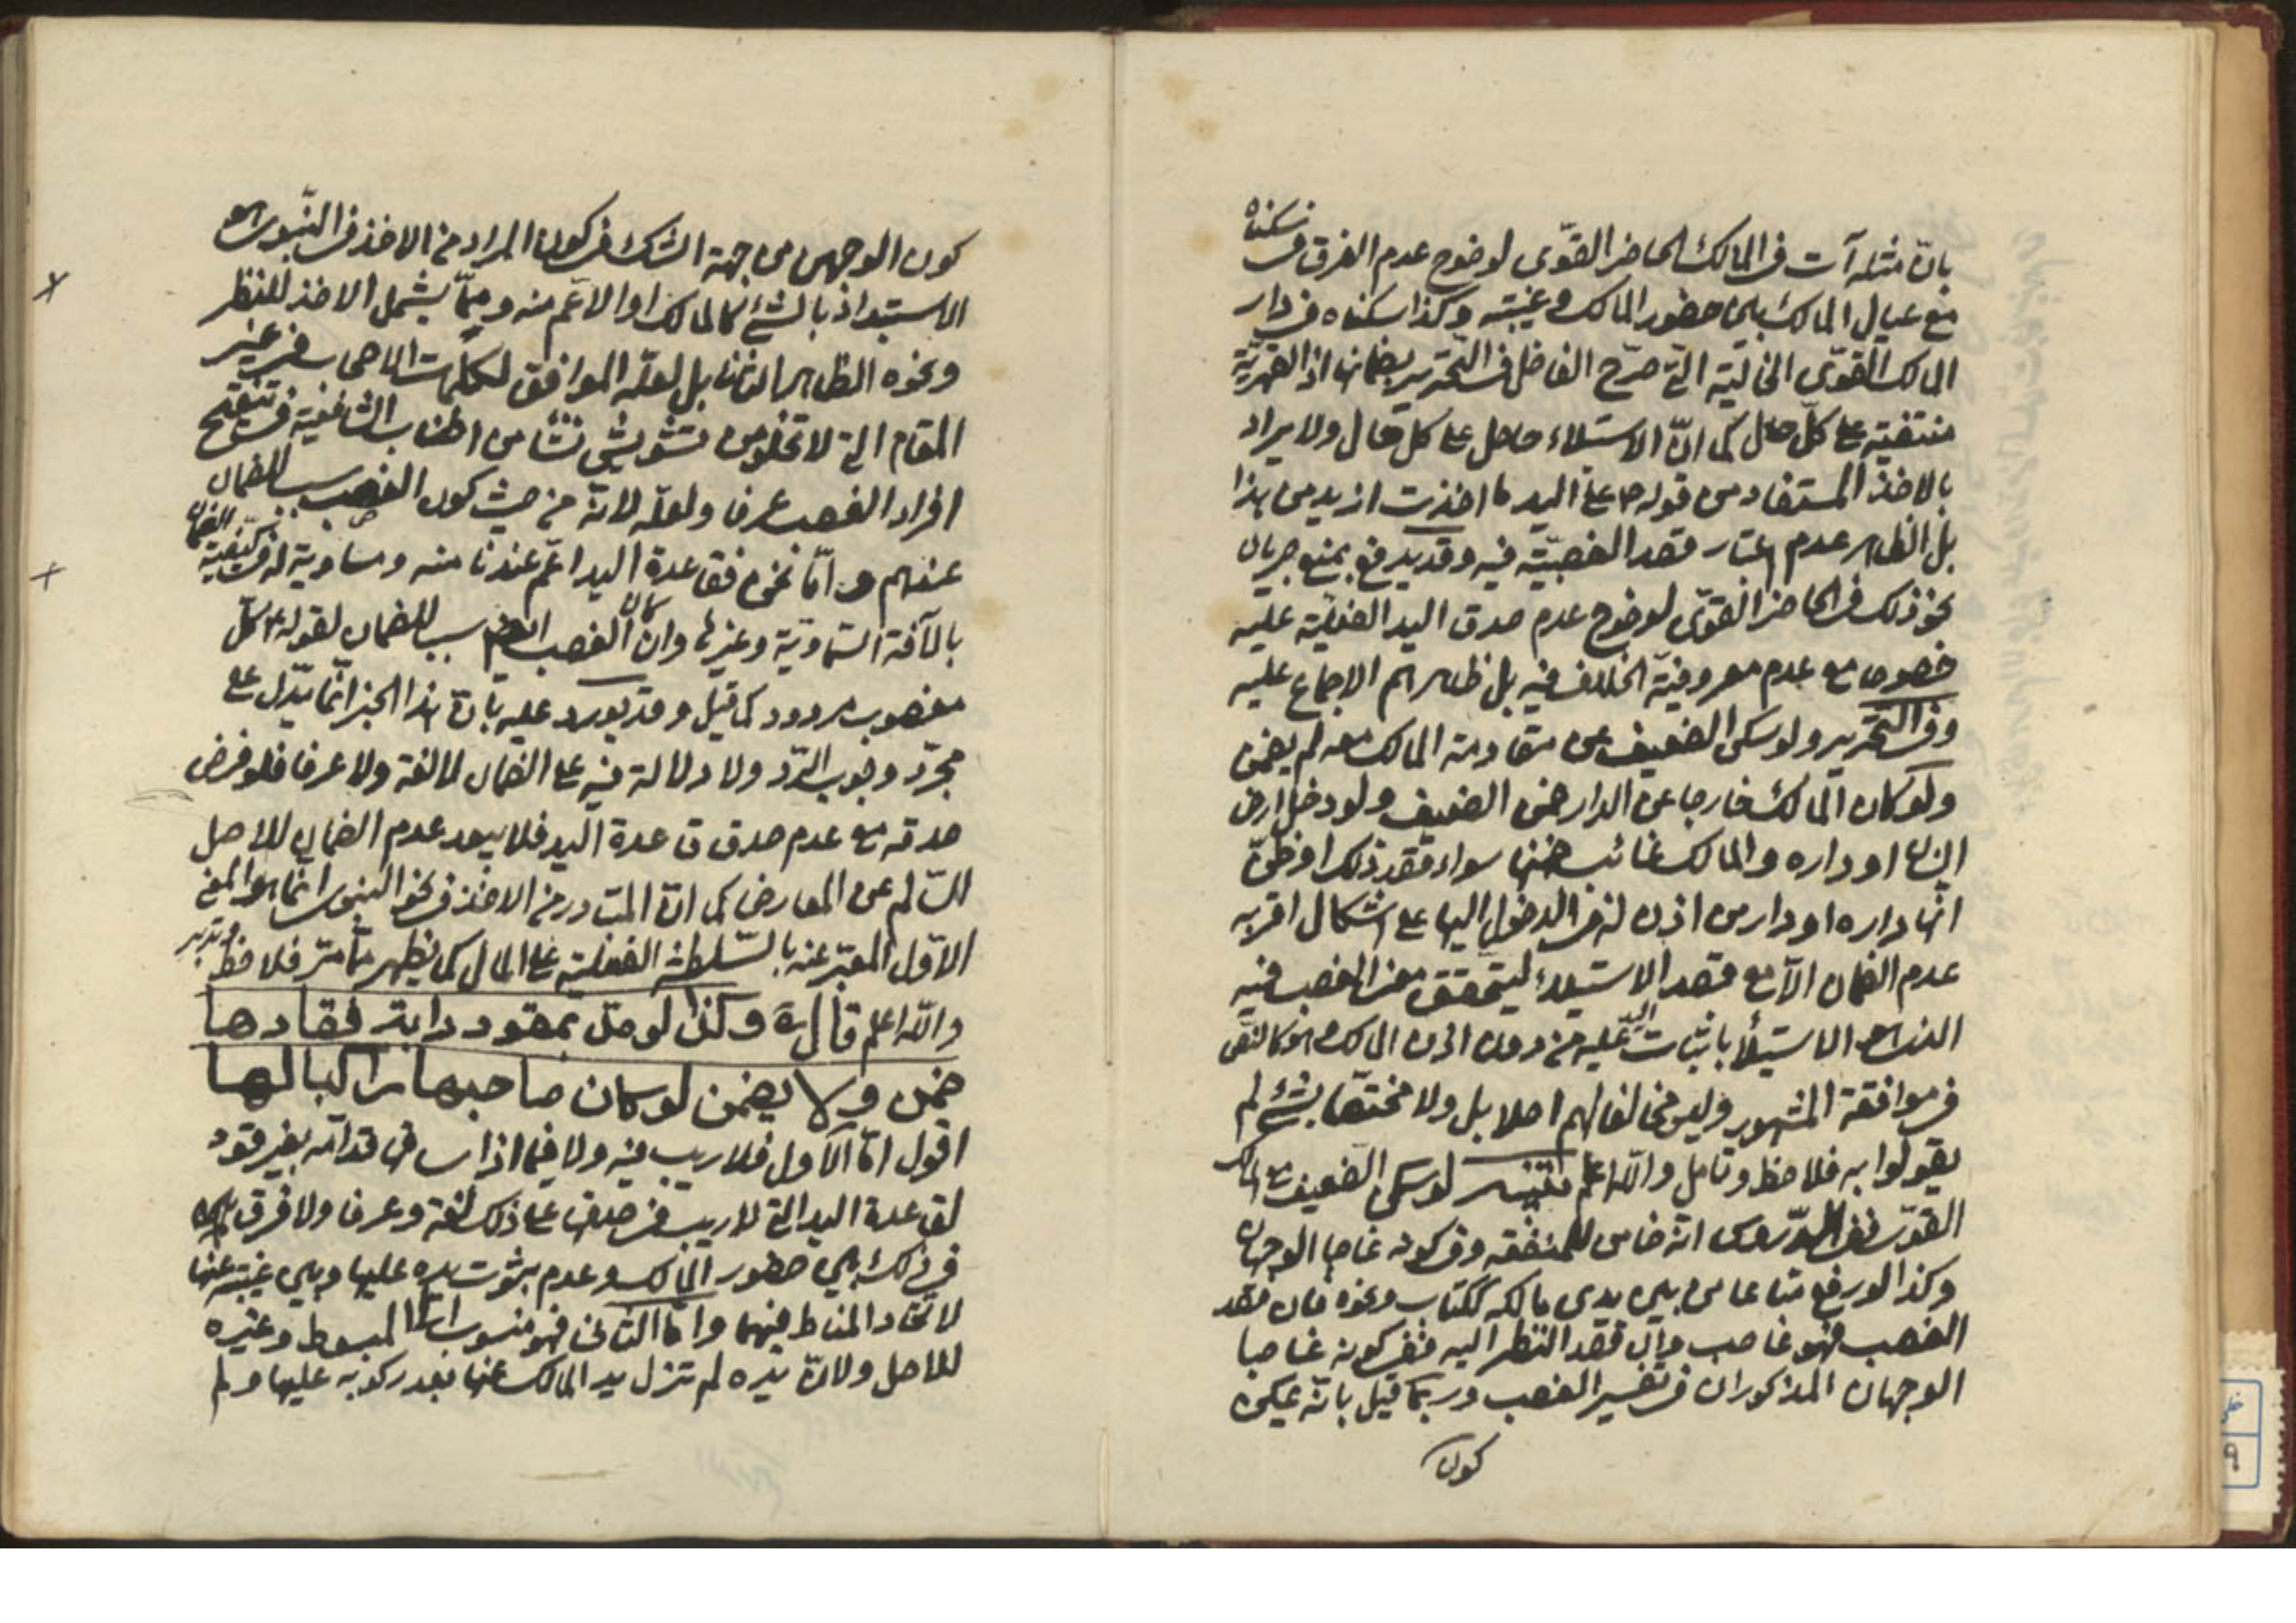 بان مثله آت فى المالك الحاضر القوى لوضوح عدم الفرق فى سكناه
مع عيال المالك بين حضور المالك وغيبته وكذا سكناه فى دار
المالك القوى الخالية التى صرح الفاضل فى التحرير بضمانها اذ القهرية
منتفية على كل حال كما ان الاستيلاء حاصل على كل حال ولا يراد
بالاخذ المستفاد من قوله ص على اليد ما اخذت ازيد من هذا
بل الظاهر عدم اعتبار قصد الغصبية فيه وقد يدفع بمنع جريان
نحو ذلك فى الحاضر القوى لوضوح عدم صدق اليد الفعلية عليه
خصوصا مع عدم معروفية الخلاف فيه بل ظاهرهم الاجماع عليه
وفى التحرير ولو سكن الضعيف عن مقاومة المالك معه لم يضمن
ولو كان المالك خارجا عن الدار ضمن الضعيف ولو دخل ارض
انسان او داره والمالك غائب ضمنها سواء قصد ذلك او ظن
انها داره او دار من اذن له فى الدخول اليها على اشكال اقربه
عدم الضمان الا مع قصد الاستيلاء ليتحقق معنى الغصب فيه
الذى هو الاستيلاء باثبات اليد عليه من دون اذن المالك وهو كالنص
فى موافقة المشهور وليس مخالفا لهم اصلا بل ولا مختصا بشئ لم
يقولوا به فلاحظ وتامل والله اعلم لو سكن الضعيف مع المالك
القوى ففى الدروس انه ضامن للمنفعة وفى كونه غاصبا الوجهان
وكذا لو رفع متاعا من بين يدى مالكه ككتاب ونحوه فان قصد
الغصب فهو غاصب وان قصد النظر اليه ففى كونه غاصبا
الوجهان المذكوران فى تفسير الغصب وربما قيل بانه يمكن
كون
كون الوجهين من جهة الشك فى كون المراد من الاخذ فى النبوى هو
الاستبداد بالشئ كالمالك او الاعم منه ومما يشمل الاخذ للنظر
ونحوه الظاهر الثانى بل لعله الموافق لكلمات الاصحاب فى غير
المقام التى لا تخلو من تشويش نشا من اطناب الشافعية فى تنقيح
افراد الغصب عرفا ولعله لانه من حيث كون الغصب سبب الضمان
عندهم واما نحن فقاعدة اليد اعم عندنا منه ومساوية له فى كيفية الضمان
بالآفة السماوية وغيرها وان كان الغصب سببا للضمان لقوله ع كل
مغصوب مردود كما قيل وقد يورد عليه بان هذا الخبر انما يدل على
مجرد وجوب الرد ولا دلالة فيه على الضمان لا لغة ولا عرفا فلو فرض
صدقه مع عدم صدق قاعدة اليد فلا يبعد عدم الضمان للاصل
السالم عن المعارض كما ان المتبادر من الاخذ فى نحو النبوى انما هو المعنى
الاول المعبر عنه بالسلطنة الفعلية على المال كما يظهر مما مر فلاحظ وتدبر
والله اعلم قال ره وكذا لو مد بمقود دابة فقادها
ضمن ولا يضمن لو كان صاحبها راكبا لها
اقول اما الاول فلا ريب فيه ولا فيما اذا ساقها قدامه بغير قود
لقاعدة اليد التى لا ريب فى صدقها على ذلك لغة وعرفا ولا فرق
فى ذلك بين حضور المالك وعدم ثبوت يده عليها وبين غيبته عنها
لاتحاد المناط فيهما واما الثانى فهو منسوب الى المبسوط وغيره
للاصل ولان يده لم تزل يد المالك عنها بعد ركوبه عليها ولم